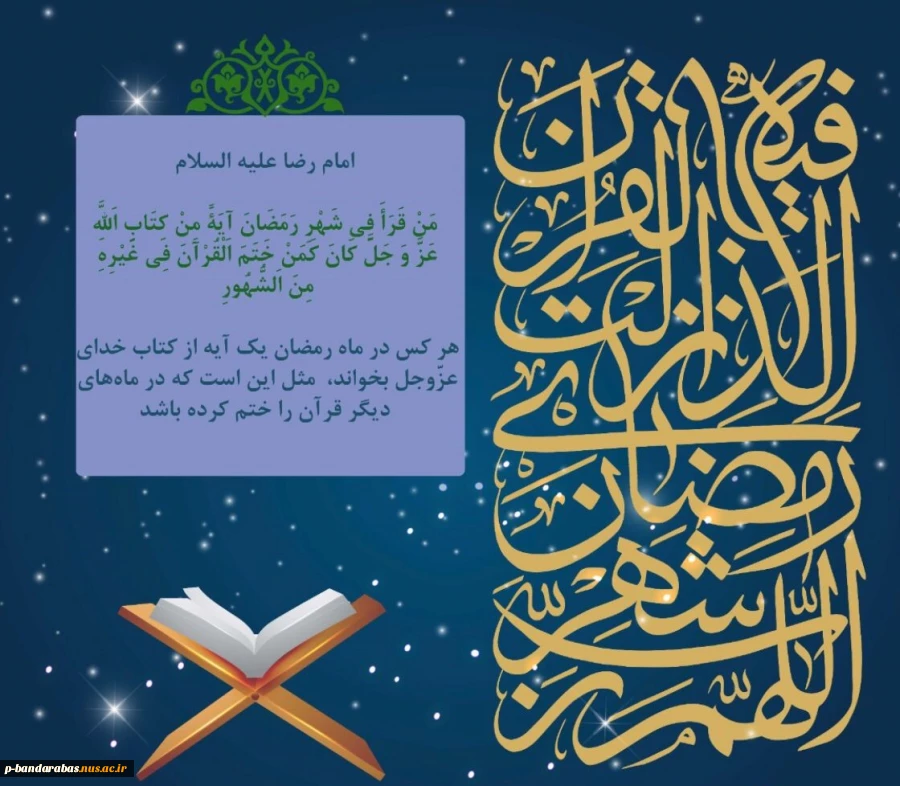 امام رضا علیه السلام
مَنْ قَرَأَ فِی شَهْرِ رَمَضَانَ آیَةً مِنْ کِتَابِ اَللَّهِ
عَزَّ وَ جَلَّ کَانَ کَمَنْ خَتَمَ اَلْقُرْآنَ فِی غَیْرِهِ
مِنَ اَلشُّهُورِ
هر کس در ماه رمضان یک آیه از کتاب خدای
عزّوجل بخواند، مثل این است که در ماه‌های
دیگر قرآن را ختم کرده باشد
اللّهمّ ربّ شهر
رمضان
الذی انزلت
فیه القرآن
p-bandarabas.nus.ac.ir